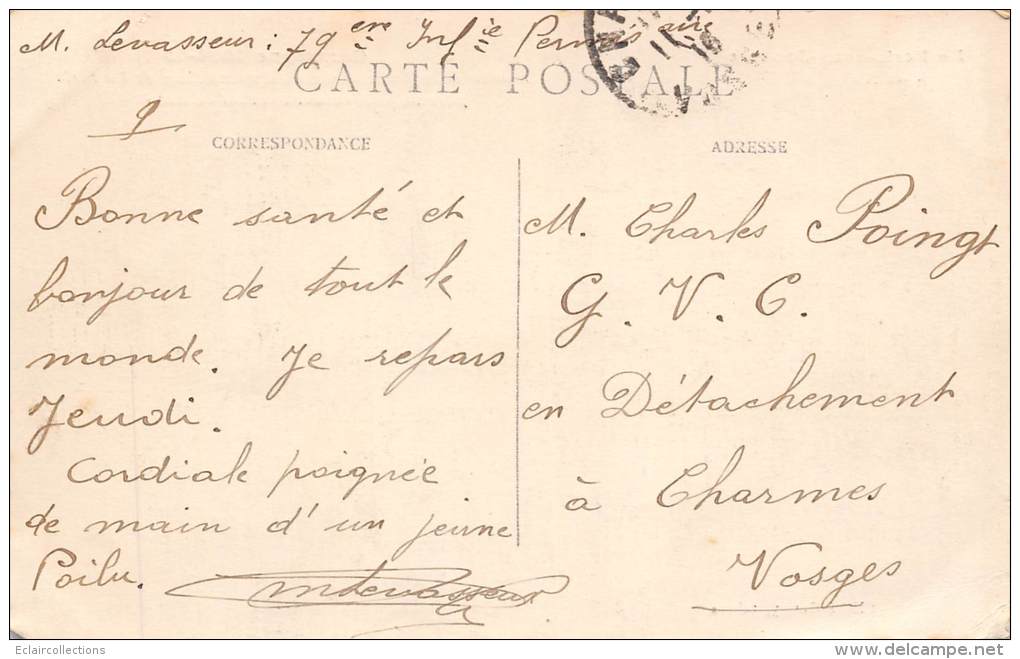 M. Levasseur : 79ere Infie Permis aire
CARTE POSTALE
CORRESPONDANCE
ADRESSE
Bonne santé et
bonjour de tout le
monde. Je repars
Jeudi.
Cordiale poignée
de main d'un jeune
Poilu. mLevasseur
M. Charles Poingt
G. V. C.
en Détachement
à Charmes
Vosges
Eclaircollections